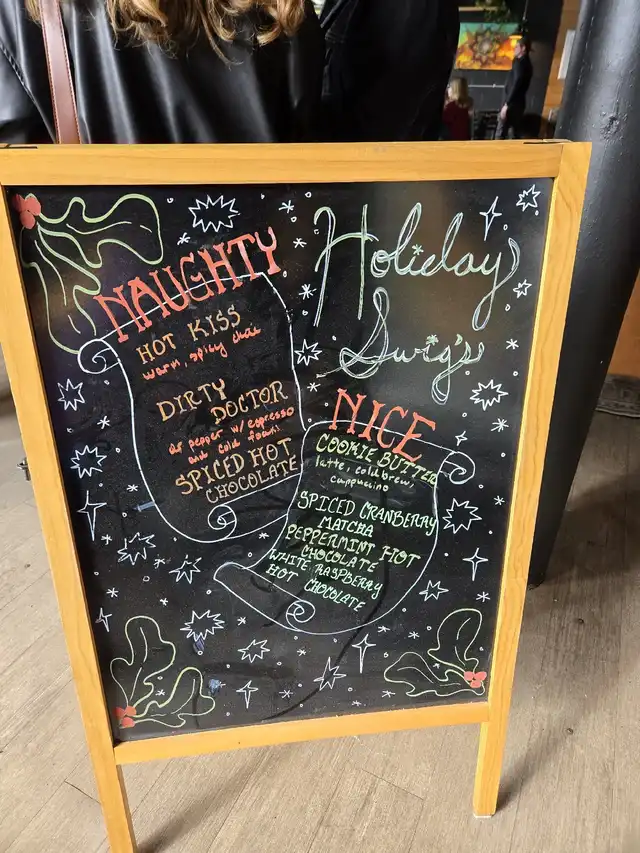 Holiday
Swig's
NAUGHTY
HOT KISS
warm, spicy chai
DIRTY
DOCTOR
dr pepper w/ espresso
and cold foam!
SPICED HOT
CHOCOLATE
NICE
COOKIE BUTTER
latte, cold brew,
cappuccino
SPICED CRANBERRY
MATCHA
PEPPERMINT HOT
CHOCOLATE
WHITE RASPBERRY
HOT CHOCOLATE